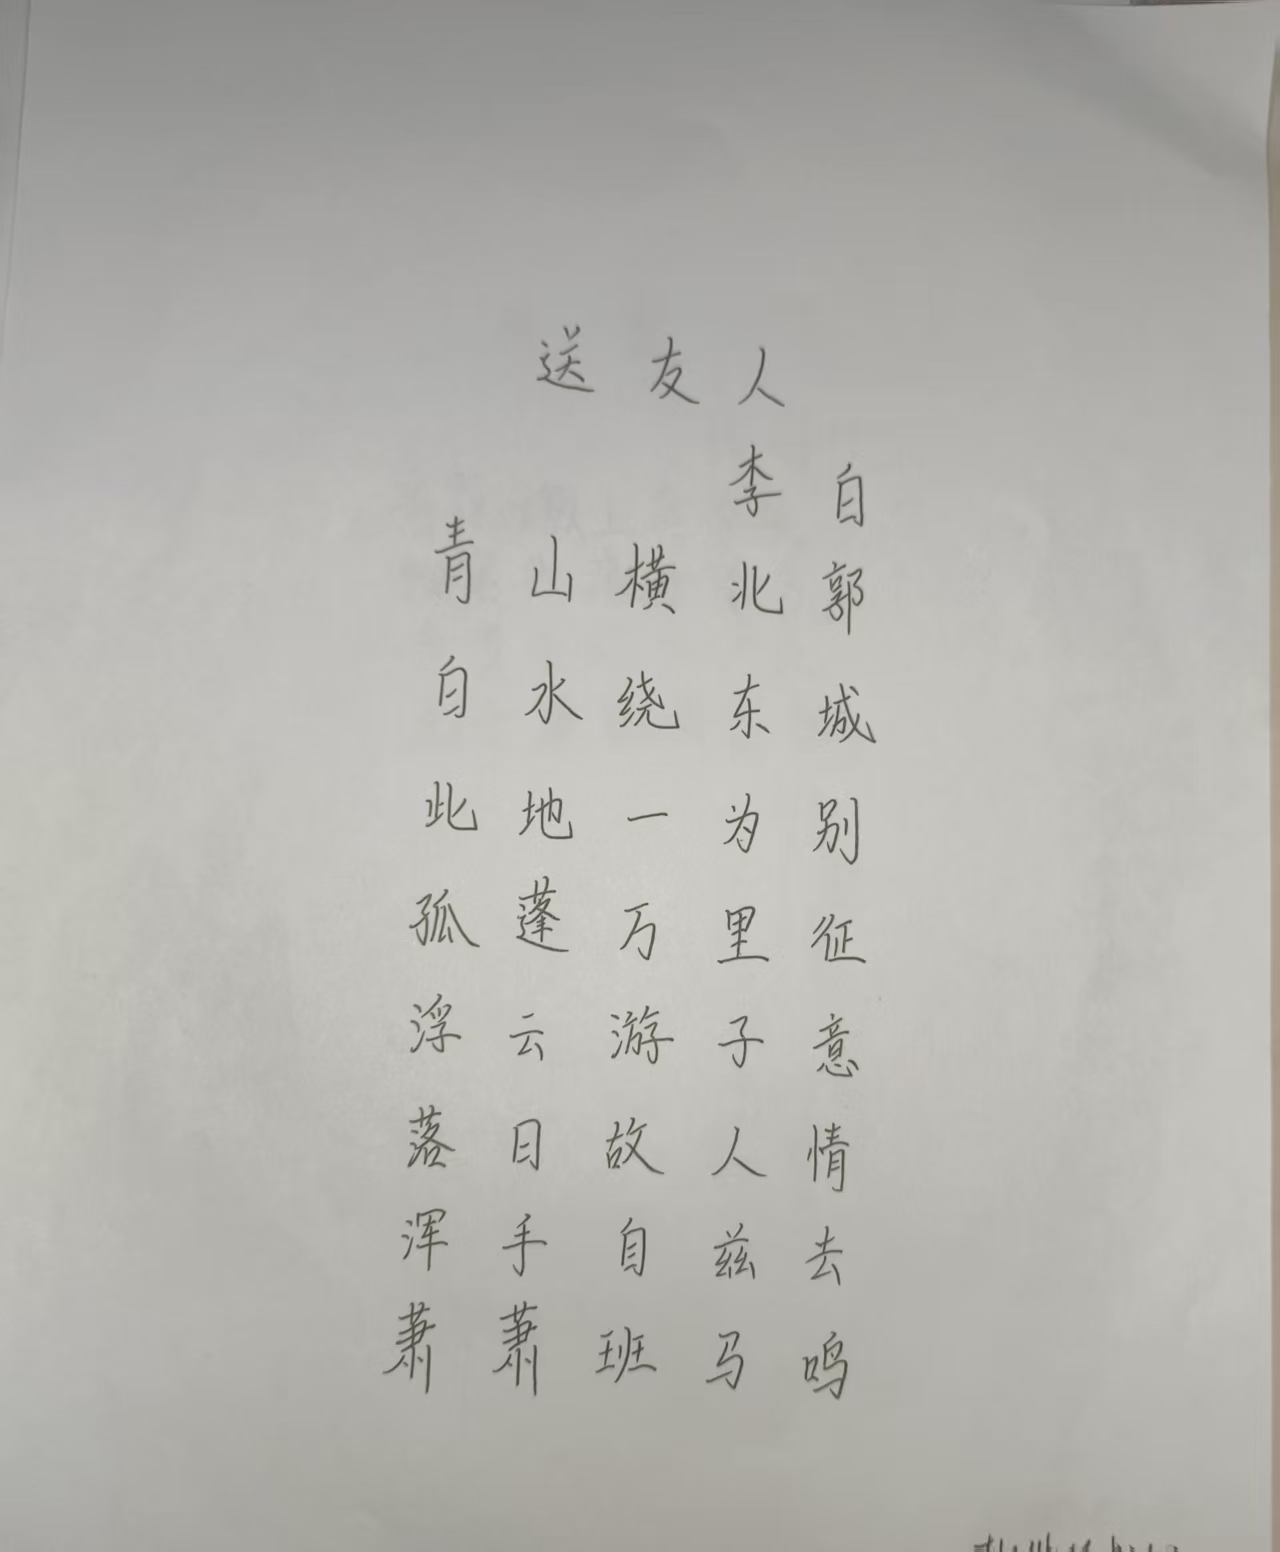 送友人
李白
青山横北郭
白水绕东城
此地一为别
孤蓬万里征
浮云游子意
落日故人情
浑手自兹去
萧萧班马鸣